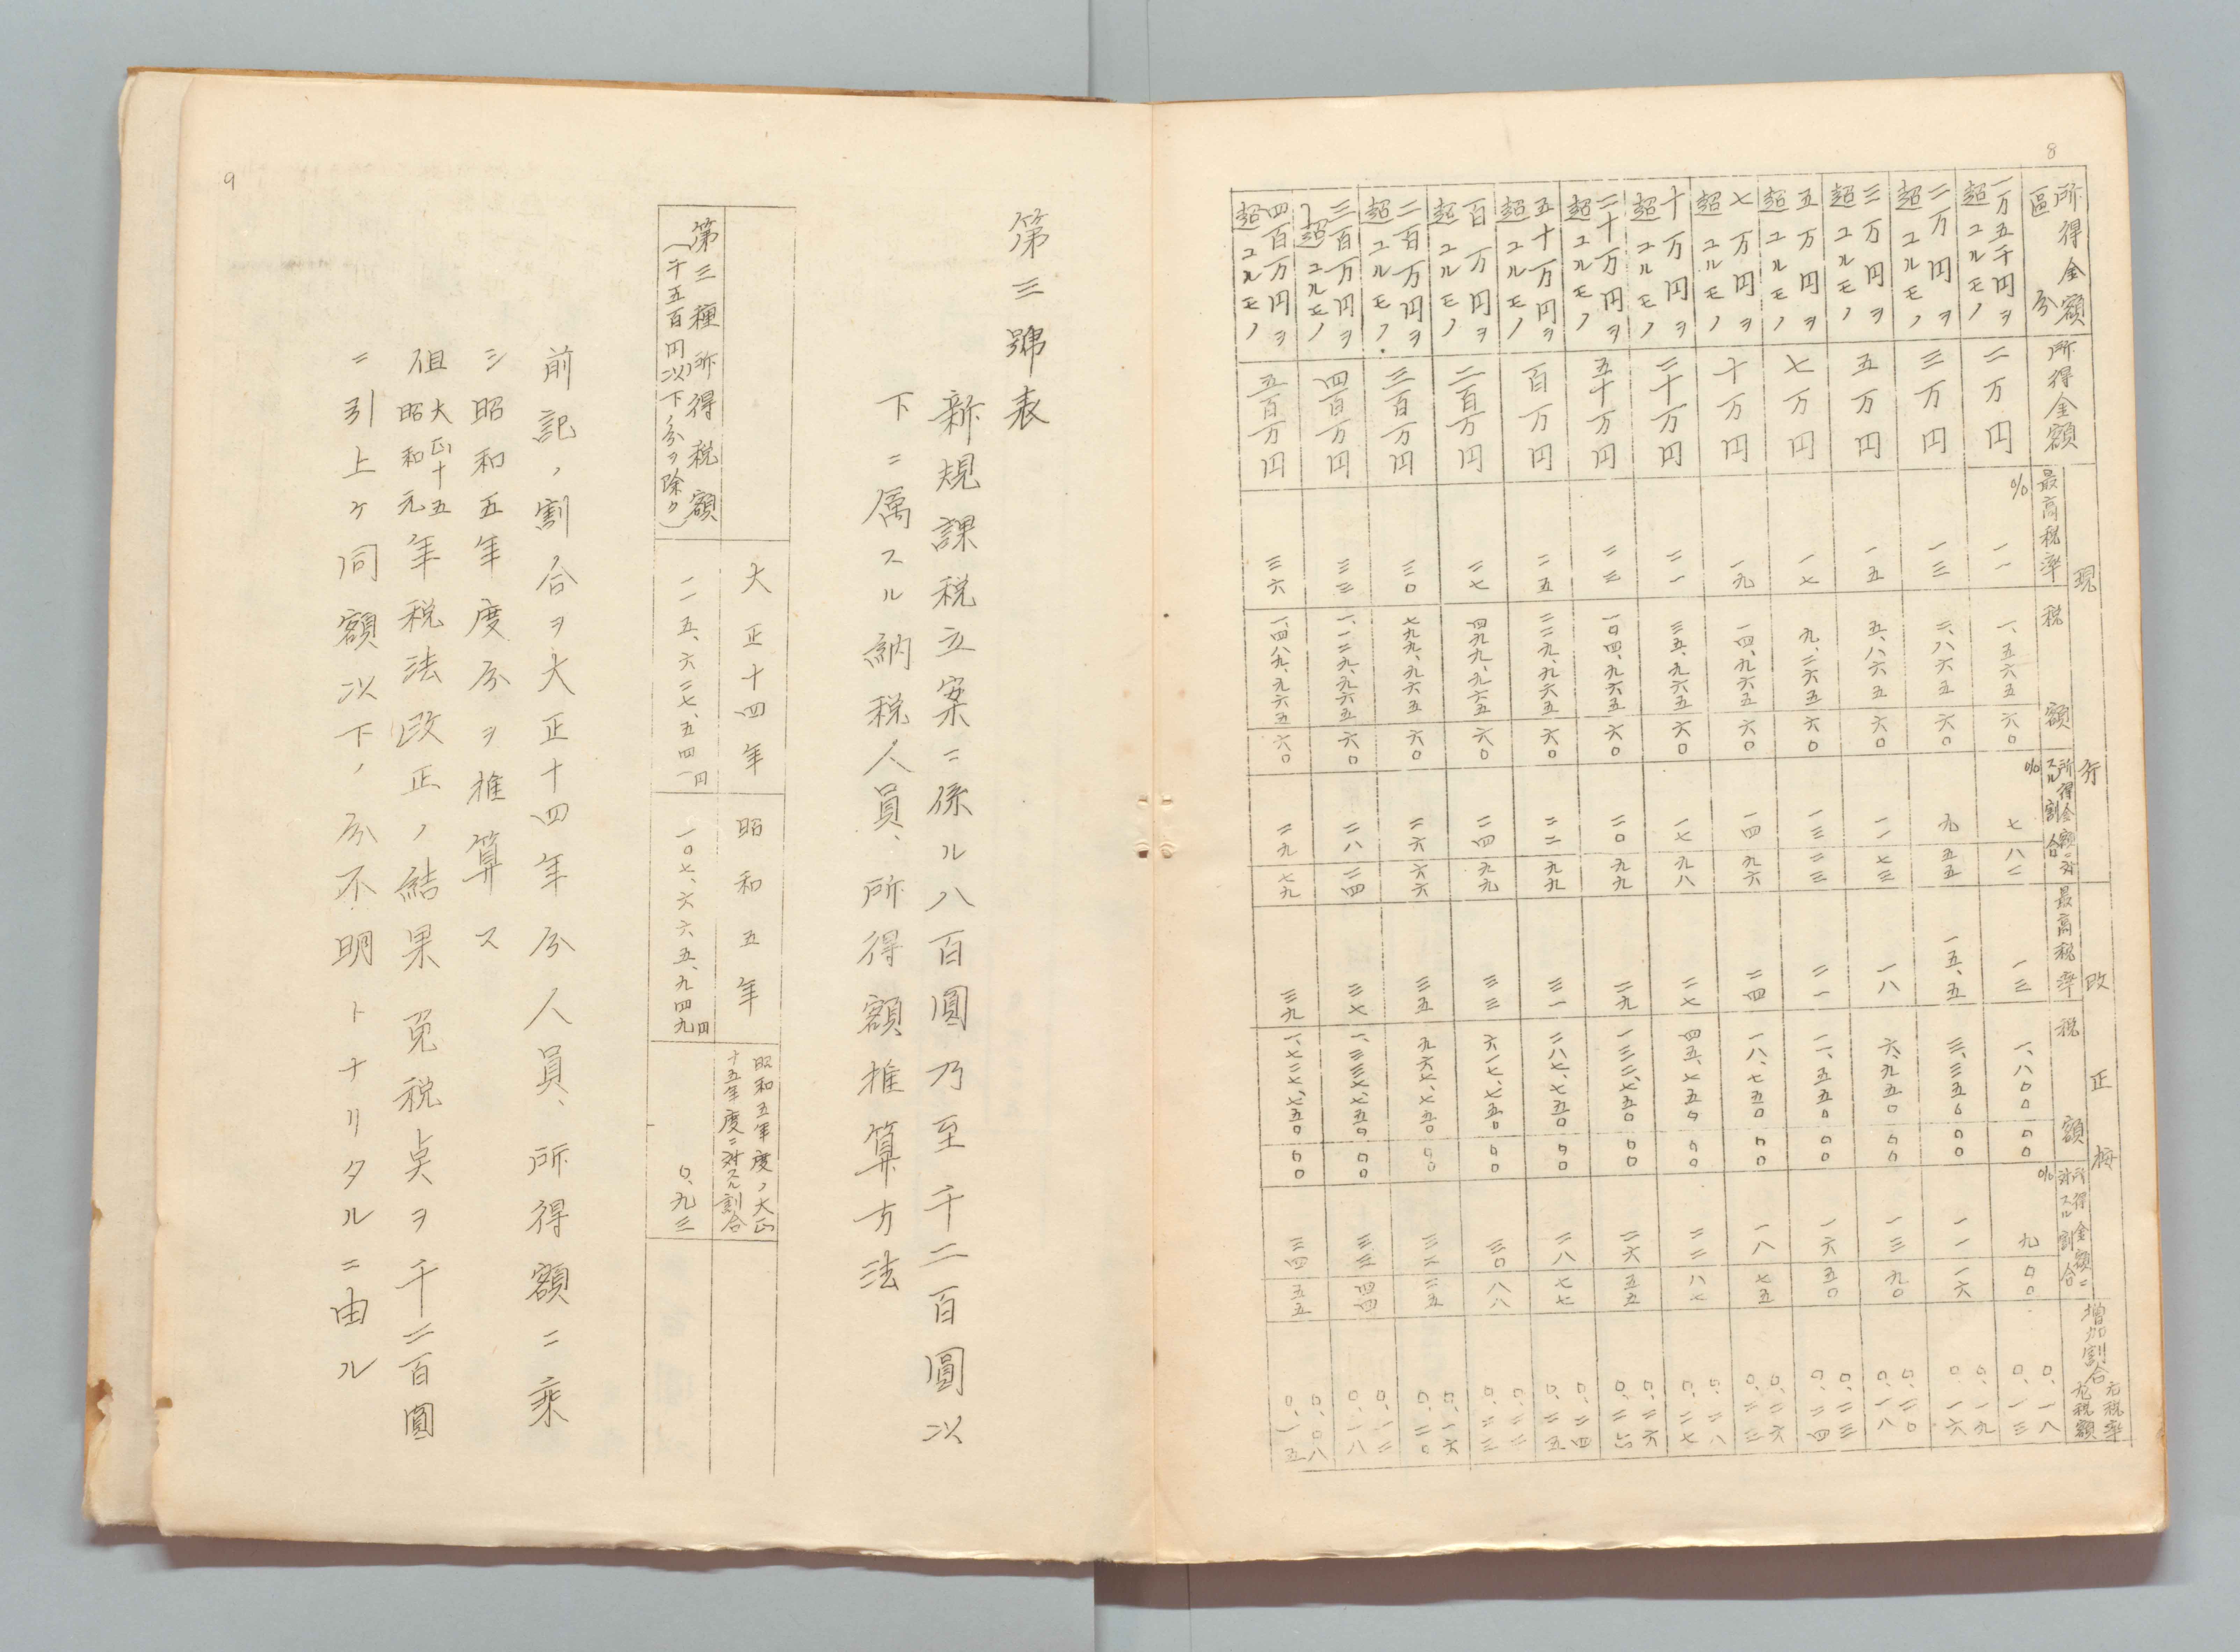 8
現行 改正按
所得金額區分 所得金額 最高税率 税額 所得金額ニ対スル割合 最高税率 税額 所得金額ニ対スル割合 増加割合 右税率 左税額
一万五千円ヲ超ユルモノ 二万円 % 一一 一、五六五 六〇 % 七 八二 一三 一、八〇〇 〇〇 % 九 〇〇 〇、一八 〇、一三
二万円ヲ超ユルモノ 三万円 一三 二、八六五 六〇 九 五五 一五、五 三、三五〇 〇〇 一一 一六 〇、一九 〇、一六
三万円ヲ超ユルモノ 五万円 一五 五、八六五 六〇 一一 七三 一八 六、九五〇 〇〇 一三 九〇 〇、二〇 〇、一八
五万円ヲ超ユルモノ 七万円 一七 九、二六五 六〇 一三 二三 二一 一一、五五〇 〇〇 一六 五〇 〇、二三 〇、二四
七万円ヲ超ユルモノ 十万円 一九 一四、九六五 六〇 一四 九六 二四 一八、七五〇 〇〇 一八 七五 〇、二六 〇、二三
十万円ヲ超ユルモノ 二十万円 二一 三五、九六五 六〇 一七 九八 二七 四五、七五〇 〇〇 二二 八七 〇、二八 〇、二七
二十万円ヲ超ユルモノ 五十万円 二三 一〇四、九六五 六〇 二〇 九九 二九 一三二、七五〇 〇〇 二六 五五 〇、二六 〇、二六
五十万円ヲ超ユルモノ 百万円 二五 二二九、九六五 六〇 二二 九九 三一 二八七、七五〇 〇〇 二八 七七 〇、二四 〇、二五
百万円ヲ超ユルモノ 二百万円 二七 四九九、九六五 六〇 二四 九九 三三 六一七、七五〇 〇〇 三〇 八八 〇、二二 〇、二三
二百万円ヲ超ユルモノ 三百万円 三〇 七九九、九六五 六〇 二六 六六 三五 九六七、七五〇 〇〇 三二 二五 〇、一六 〇、二〇
三百万円ヲ超ユルモノ 四百万円 三三 一、一二九、九六五 六〇 二八 二四 三七 一、三三七、七五〇 〇〇 三三 四四 〇、一二 〇、一八
四百万円ヲ超ユルモノ 五百万円 三六 一、四八九、九六五 六〇 二九 七九 三九 一、七二七、七五〇 〇〇 三四 五五 〇、〇八 〇、一五
9
第三號表
新規課税立案ニ係ル八百圓乃至千二百圓以
下ニ属スル納税人員、所得額推算方法
大正十四年 昭和五年 昭和五年度ノ大正十五年度ニ対スル割合
第三種所得税額(千五百円以下ノ分ヲ除ク) 一一五、六二七、五四一円 一〇七、六六五、九四九円 〇、九三
前記ノ割合ヲ大正十四年分人員、所得額ニ乘
シ昭和五年度分ヲ推算ス
但大正十五昭和元年税法改正ノ結果免税点ヲ千二百圓
ニ引上ケ同額以下ノ分不明トナリタルニ由ル